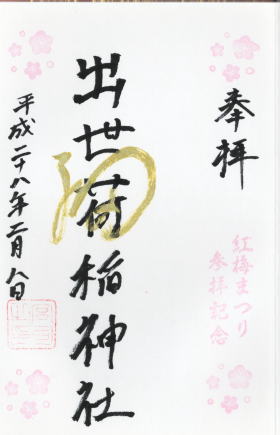 奉拝
紅梅まつり
参拝記念
出世稲荷神社
平成二十八年二月八日